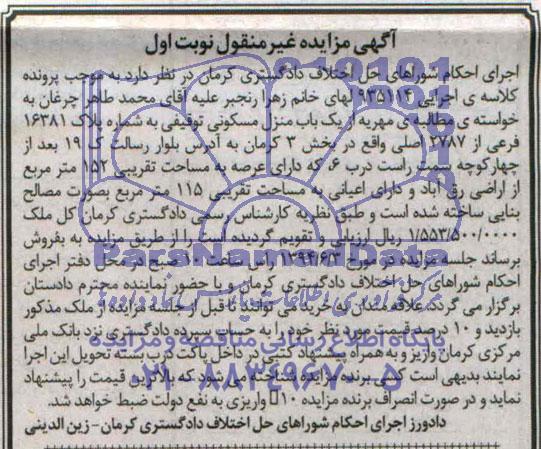 آگهی مزایده غیر منقول نوبت اول
اجرای احکام شوراهای حل اختلاف دادگستری کرمان در نظر دارد به موجب پرونده
کلاسه ی اجرایی ۹۳۵۱۱۴ لهای خانم زهرا رنجبر علیه آقای محمد طاهر چرغان به
خواسته ی مطالبه ی مهریه از یک باب منزل مسکونی توقیفی به شماره پلاک ۱۶۳۸۱
فرعی از ۲۷۸۷ اصلی واقع در بخش ۳ کرمان به آدرس بلوار رسالت ک ۱۹ بعد از
چهارکوچه سمت راست درب ۶، که دارای عرصه به مساحت تقریبی ۱۵۲ متر مربع
از اراضی رق آباد و دارای اعیانی به مساحت تقریبی ۱۱۵ متر مربع بصورت مصالح
بنایی ساخته شده است و طبق نظریه کارشناس رسمی دادگستری کرمان کل ملک
۱/۵۵۳/۵۰۰/۰۰۰۰ ریال ارزیابی و تقویم گردیده است را از طریق مزایده به بفروش
برساند جلسه مزایده در مورخ ۱۳۹۴/۶/۳ راس ساعت ۱۱ صبح در محل دفتر اجرای
احکام شوراهای حل اختلاف دادگستری کرمان و با حضور نماینده محترم دادستان
برگزار می گردد علاقه مندان ی خرید می توانند تا قبل از جلسه مزایده از ملک مذکور
بازدید و ۱۰ درصد قیمت مورد نظر خود را به حساب سپرده دادگستری نزد بانک ملی
مرکزی کرمان واریز و به همراه پیشنهاد کتبی در داخل پاکت درب بسته تحویل این اجرا
نمایند بدیهی است کسی برنده مزایده شناخته می شود که بالاترین قیمت را پیشنهاد
نماید و در صورت انصراف برنده مزایده ۱۰ واریزی به نفع دولت ضبط خواهد شد.
دادورز اجرای احکام شوراهای حل اختلاف دادگستری کرمان - زین الدینی
ParsNamadData
پایگاه اطلاع رسانی مناقصه و مزایده
۰۲۱-۸۸۳۴۹۶۷۰-۵